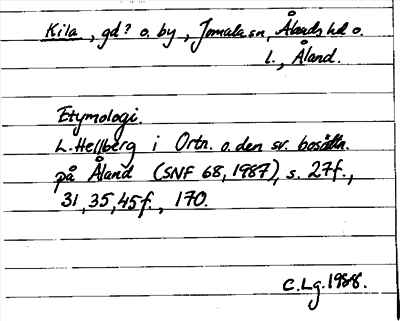 Kila, gd? o. by, Jomala sn, Ålands hd o.
l., Åland.
Etymologi.
L. Hellberg i Ortn. o. den sv. bosättn.
på Åland (SNF 68, 1987), s. 27f.,
31, 35, 45f., 170.
C. Lg. 1988.